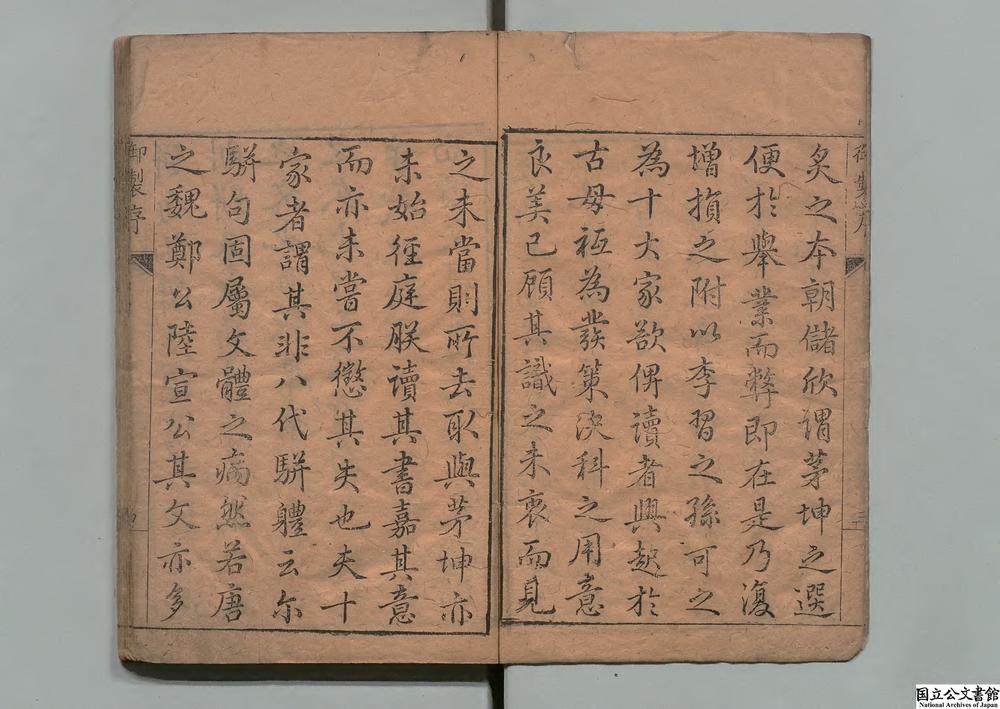 炙之本朝儲欣謂茅坤之選
便於舉業而弊即在是乃復
增損之附以李習之孫可之
為十大家欲俾讀者興起於
古毋秪為發策決科之用意
良美已顧其識之未衷而見
之未當則所去取與茅坤亦
未始徑庭朕讀其書嘉其意
而亦未嘗不懲其失也夫十
家者謂其非八代駢體云尔
駢句固屬文體之病然若唐
之魏鄭公陸宣公其文亦多
御製序
国立公文書館
National Archives of Japan